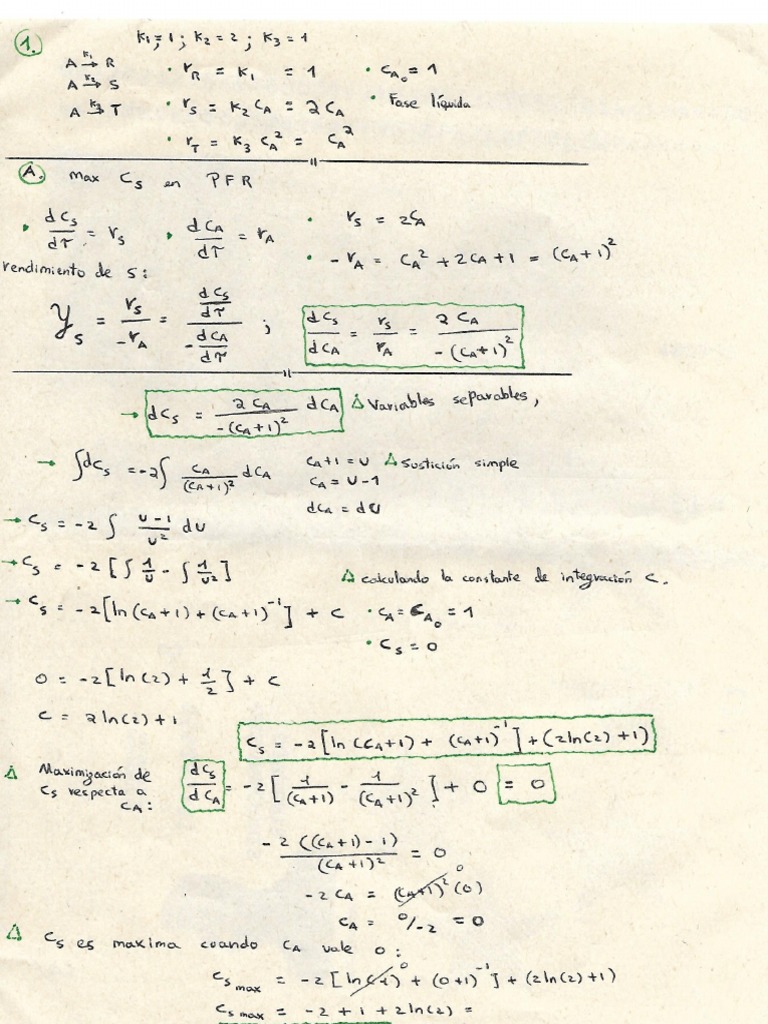 1. k₁=1 ; k₂=2 ; k₃=1
A —k₁→ R · r_R = k₁ = 1 · C_A₀ = 1
A —k₂→ S · r_S = k₂ C_A = 2 C_A · Fase líquida
A —k₃→ T
· r_T = k₃ C_A² = C_A²
A. max C_S en PFR
· dC_S/dτ = r_S · dC_A/dτ = r_A · r_S = 2C_A
· -r_A = C_A² + 2C_A + 1 = (C_A+1)²
rendimiento de s:
Y_S = r_S/-r_A = (dC_S/dτ)/(-dC_A/dτ) ; dC_S/dC_A = r_S/r_A = 2C_A/-(C_A+1)²
→ dC_S = 2C_A/-(C_A+1)² dC_A Δ Variables separables,
→ ∫dC_S = -2∫ C_A/(C_A+1)² dC_A C_A+1 = U Δ Sustición simple
C_A = U-1
dC_A = dU
→ C_S = -2 ∫ U-1/U² dU
→ C_S = -2 [∫ 1/U - ∫ 1/U²]
Δ calculando la constante de integración C.
→ C_S = -2[ln(C_A+1) + (C_A+1)⁻¹] + C · C_A = C_A₀ = 1
· C_S = 0
0 = -2[ln(2) + 1/2] + C
C = 2ln(2)+1
C_S = -2[ln(C_A+1) + (C_A+1)⁻¹] + (2ln(2)+1)
Δ Maximización de
C_S respecta a
C_A:
dC_S/dC_A = -2[1/(C_A+1) - 1/(C_A+1)²] + 0 = 0
-2((C_A+1)-1)/(C_A+1)² = 0
-2C_A = (C_A+1)²(0) 0
C_A = 0/-2 = 0
Δ C_S es maxima cuando C_A vale 0:
C_S max = -2[ln(1) 0 + (0+1)⁻¹] + (2ln(2)+1)
C_S max = -2+1+2ln(2) =